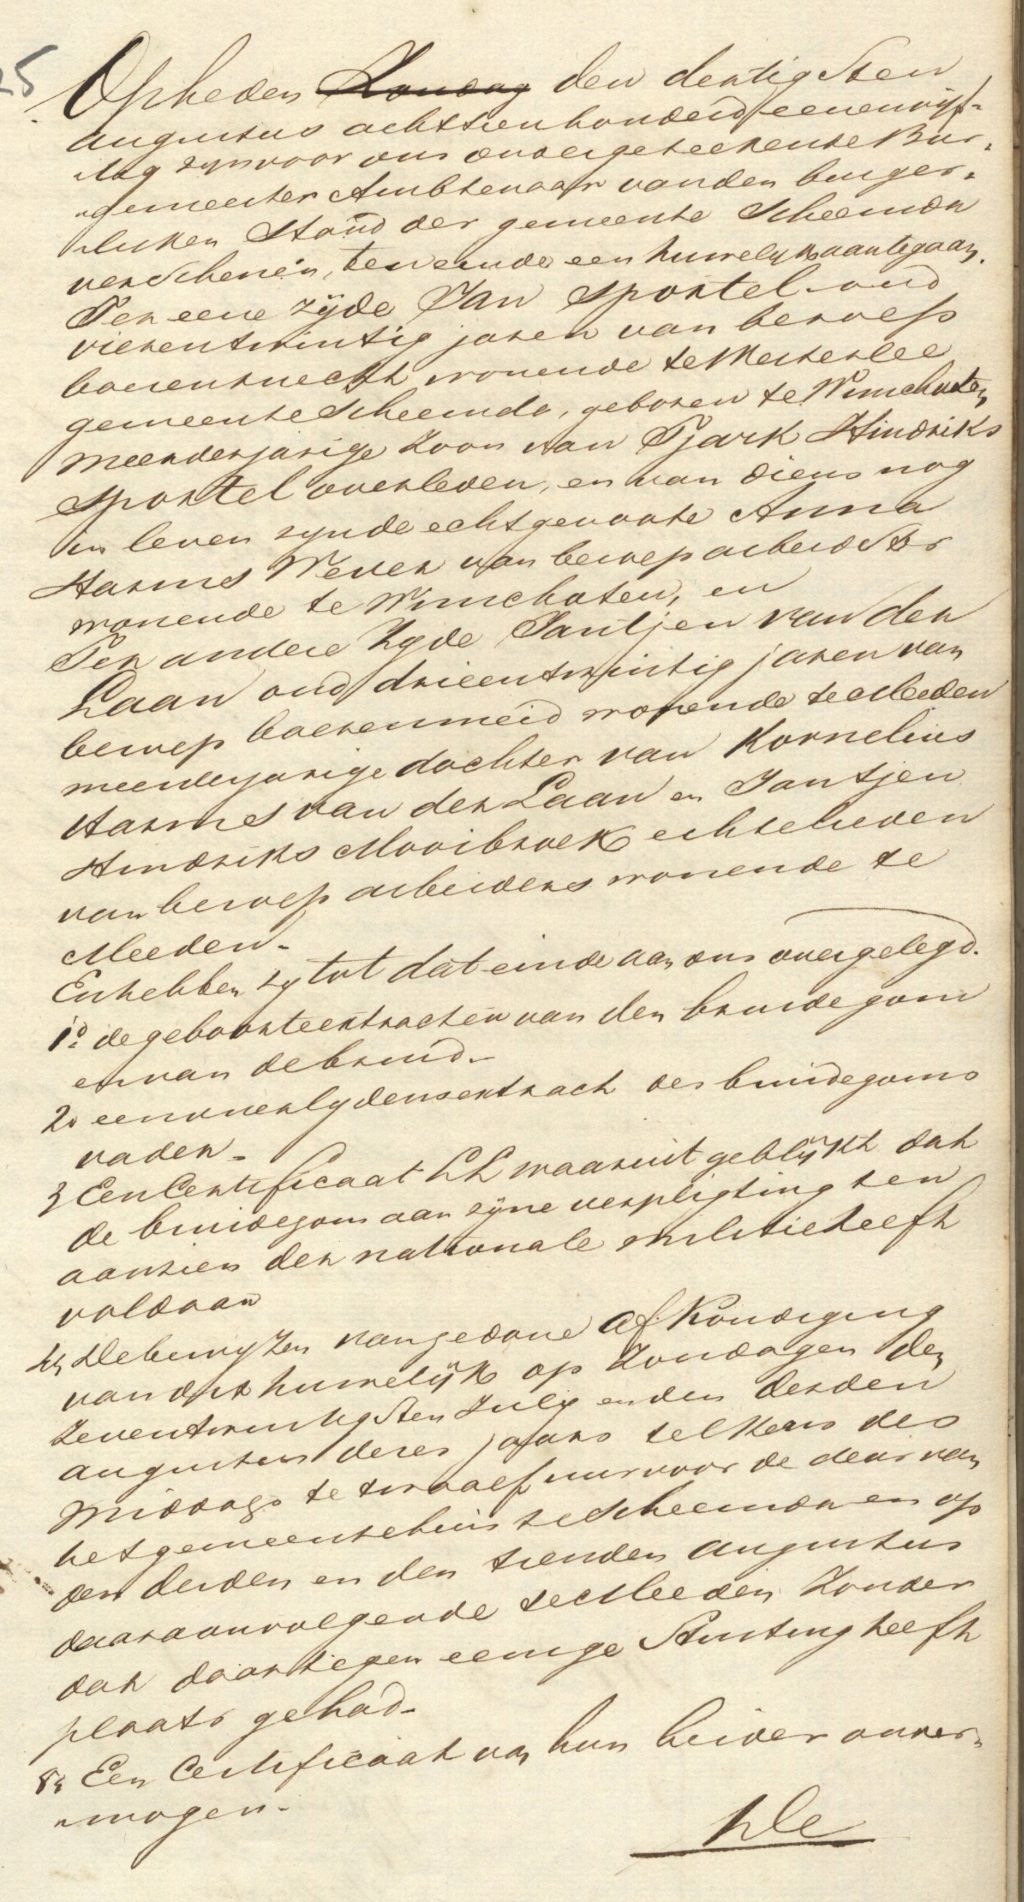 25
Opheden Zondag den dertigsten
augustus achttienhonderd eenenvijf-
tig zyn voor ons ondergeteekende Bur-
gemeester Ambtenaar van den burger-
lyken Stand der gemeente Scheemda
verschenen, ten einde een huwelyk aantegaan.
Ter eene zÿde Jan Sportel oud
vierentwintig jaren van beroep
boerenknecht wonende te Westerlee
gemeente Scheemda, geboren te Winschoten,
meerderjarige zoon van Tjark Hindriks
Sportel overleden, en van diens nog
in leven zynde echtgenoote Anna
Harms Wever van beroep arbeidster
wonende te Winschoten, en
Ter andere Zyde Jantjen van der
Laan oud drieentwintig jaren van
beroep boerenmeid wonende te Meeden
meerderjarige dochter van Kornelius
Harms van der Laan en Jantjen
Hindriks Mooibroek echtelieden
van beroep arbeiders wonende te
Meeden.-
En hebben zy tot dat einde aan ons overgelegd.
1o de geboorteextracten van den bruidegom
en van de bruid.-
2o een overlydensextract des bruidegoms
vader.-
3 Een Certificaat LL waaruit geblÿkt dat
de bruidegom aan zyne verpligting ten
aanzien der nationale militie heeft
voldaan
4 De bewyzen van gedane afkondiging
van dit huwelÿk op Zondagen den
Zevenentwintigsten July en den derden
augustus dezes jaars telkens des
middags te twaalf uur voor de deur van
het gemeentehuis te Scheemda en op
den derden en den tienden augustus
daaraanvolgende te Meeden zonder
dat daartegen eenige Stuiting heeft
plaats gehad.-
5 Een Certificaat van hun beider onver-
mogen.-
De